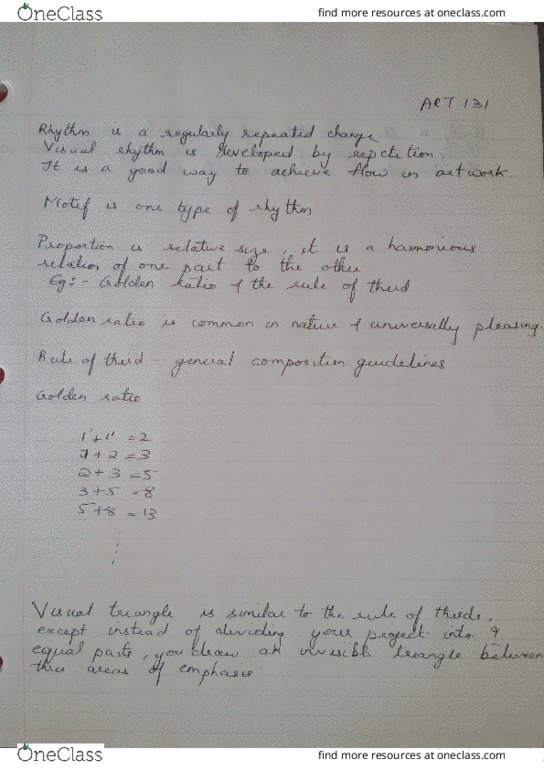 OneClass
find more resources at oneclass.com
ART 131
Rhythm is a regularly repeated change
Visual rhythm is developed by repetition
It is a good way to achieve flow in artwork.
Motif is one type of rhythm
Proportion is relative size, it is a harmonious
relation of one part to the other
Eg:- Golden ratio & the rule of third
Golden ratio is common in nature & universally pleasing.
Rule of third - general composition guidelines
Golden ratio
1+1 = 2
1+2 = 3
2+3 = 5
3+5 = 8
5+8 = 13
Visual triangle is similar to the rule of thirds,
except instead of dividing your project into 9
equal parts, you draw an invisible triangle between
three areas of emphasis.
OneClass
find more resources at oneclass.com